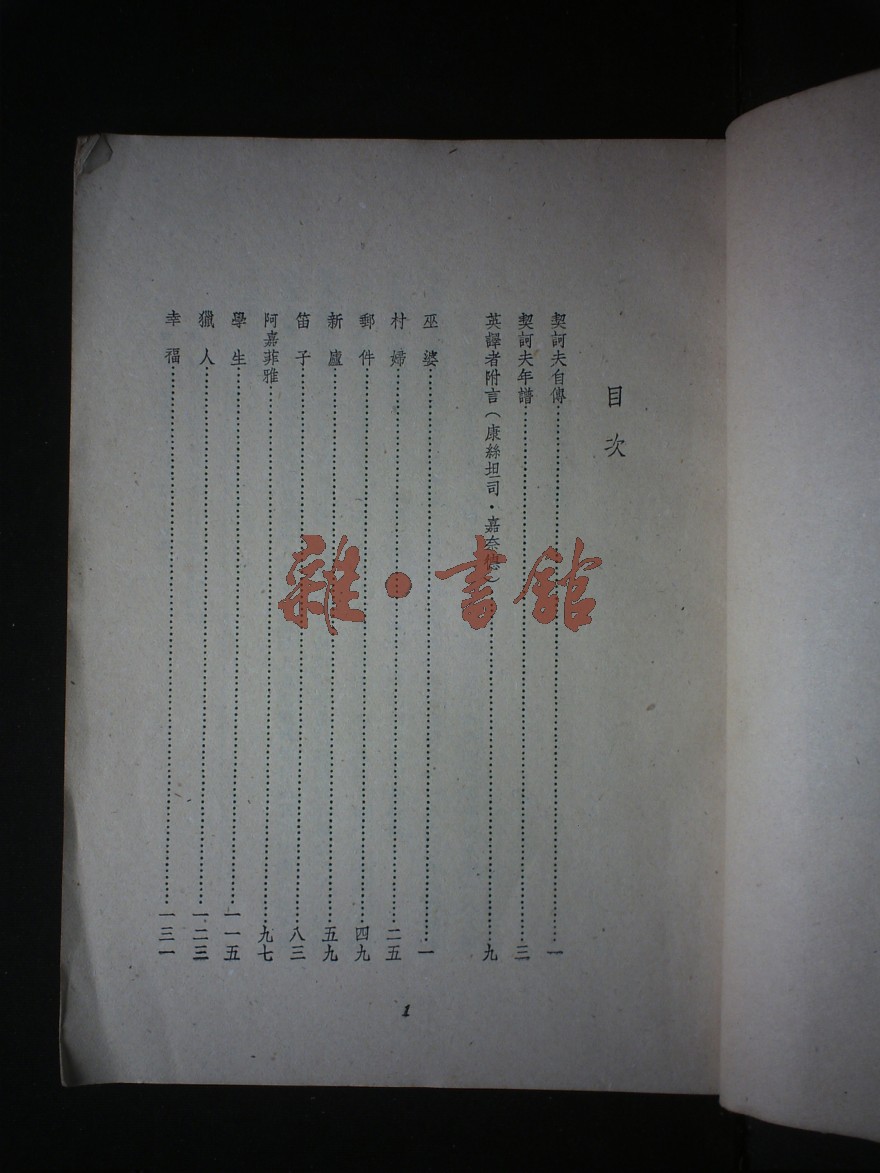 目次
契訶夫自傳…………一
契訶夫年譜…………三
英譯者附言(康絲坦司·嘉奈德)…………九
巫婆…………一
村婦…………二五
郵件…………四九
新廬…………五九
笛子…………八三
阿嘉菲雅…………九七
學生…………一一五
獵人…………一二三
幸福…………一三一
1
雜·書館